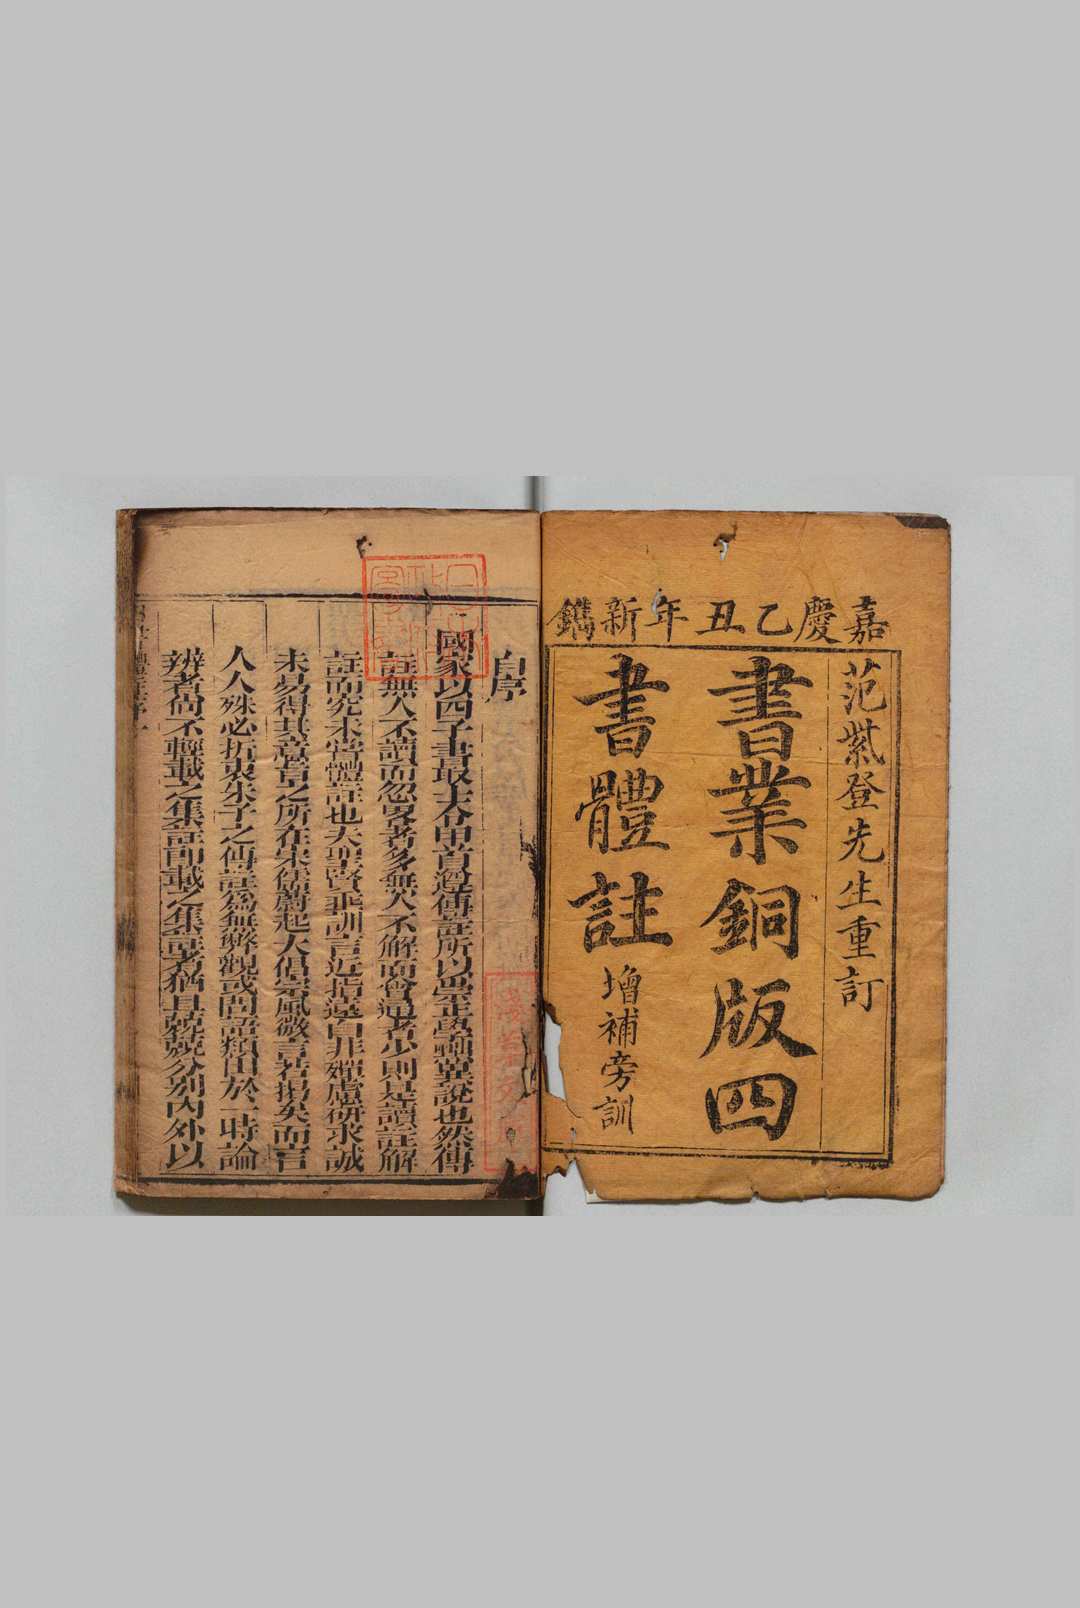 嘉慶乙丑年新鐫
范紫登先生重訂
書業銅版四
書體註
增補旁訓
自序
國家以四子書最大合甲首遵傳註所以崇正學黜異說也然傳
註無人不讀而忽畧者多無人不解而會通者少則是讀註解
註而究未嘗體註也夫聖賢垂訓言近指遠自非殫慮研求誠
未易得其意旨之所在宋儒蔚起大倡宗風微言若揭矣而言
人人殊必折衷朱子之傳註為無弊觀或問語類出於一時論
辨者尚不輕載之集註即載之集註者猶且兢兢分別內外以